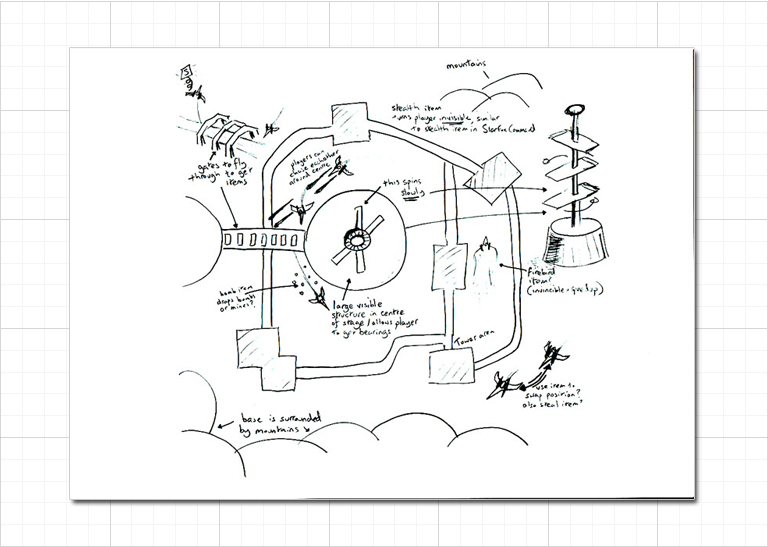 mountains
stealth item
turns player invisible, similar
to stealth item in Starfox (
S
gates to fly
through to get
items
players can
chase eachother
around centre
this spins
slowly
firebird
item?
(invincible +
bomb item
drops bombs
or mines?
large visible
structure in centre
of stage / allows player
to get bearings
Tower area
use item to
swap position?
also steal item?
base is surrounded
by mountains